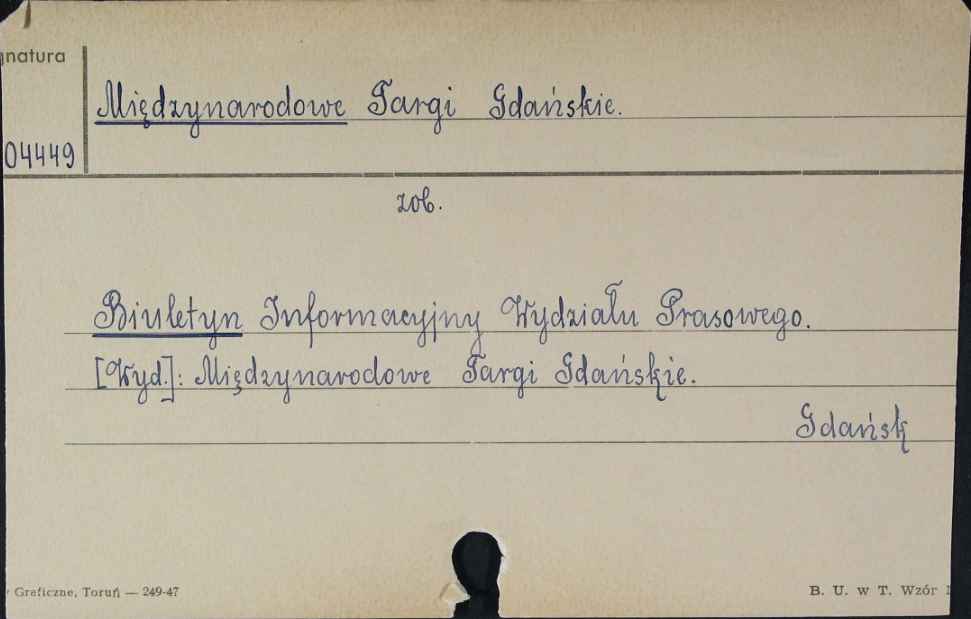 natura
Międzynarodowe Targi Gdańskie.
04449
zob.
Biuletyn Informacyjny Wydziału Prasowego.
[Wyd.]: Międzynarodowe Targi Gdańskie.
Gdańsk
Graficzne, Toruń — 249-47
B. U. w T. Wzór